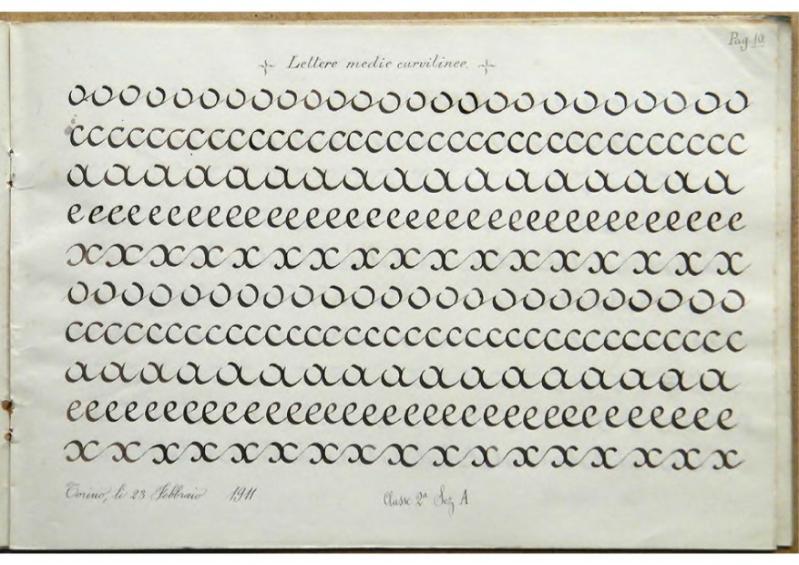 Pag. 10
Lettere medie curvilinee.
o o o o o o o o o o o o o o o o o o o o o o o o o
c c c c c c c c c c c c c c c c c c c c c c c c c c c c c c c c c
a a a a a a a a a a a a a a a a a
e e e e e e e e e e e e e e e e e e e e e e e e e e e e e e e e e
x x x x x x x x x x x x x x x x x
o o o o o o o o o o o o o o o o o o o o o o o o
c c c c c c c c c c c c c c c c c c c c c c c c c c c c c c c c c
a a a a a a a a a a a a a a a a a
e e e e e e e e e e e e e e e e e e e e e e e e e e e e e e e e e
x x x x x x x x x x x x x x x x x
Torino, li 23 Febbraio 1911
Classe 2ª Sez A